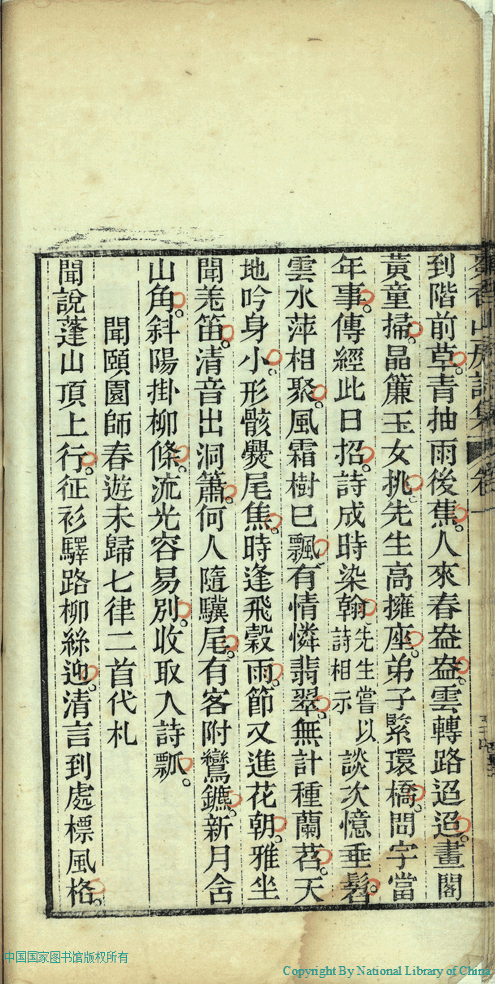 到階前草青抽雨後蕉人來春盎盎雲轉路迢迢畫閣
黃童掃晶簾玉女挑先生高擁座弟子緊環橋問字當
年事傳經此日招詩成時染翰先生嘗以詩相示談次憶垂髫
雲水萍相聚風霜樹已飄有情憐翡翠無計種蘭苕天
地吟身小形骸爨尾焦時逢飛穀雨節又進花朝雅坐
聞羗笛清音出洞簫何人隨驥尾有客附鸞鑣新月舍
山角斜陽掛柳條流光容易別收取入詩瓢
聞頤園師春遊未歸七律二首代札
聞說蓬山頂上行征衫驛路柳絲迎清言到處標風格
中国国家图书馆版权所有
Copyright By National Library of China